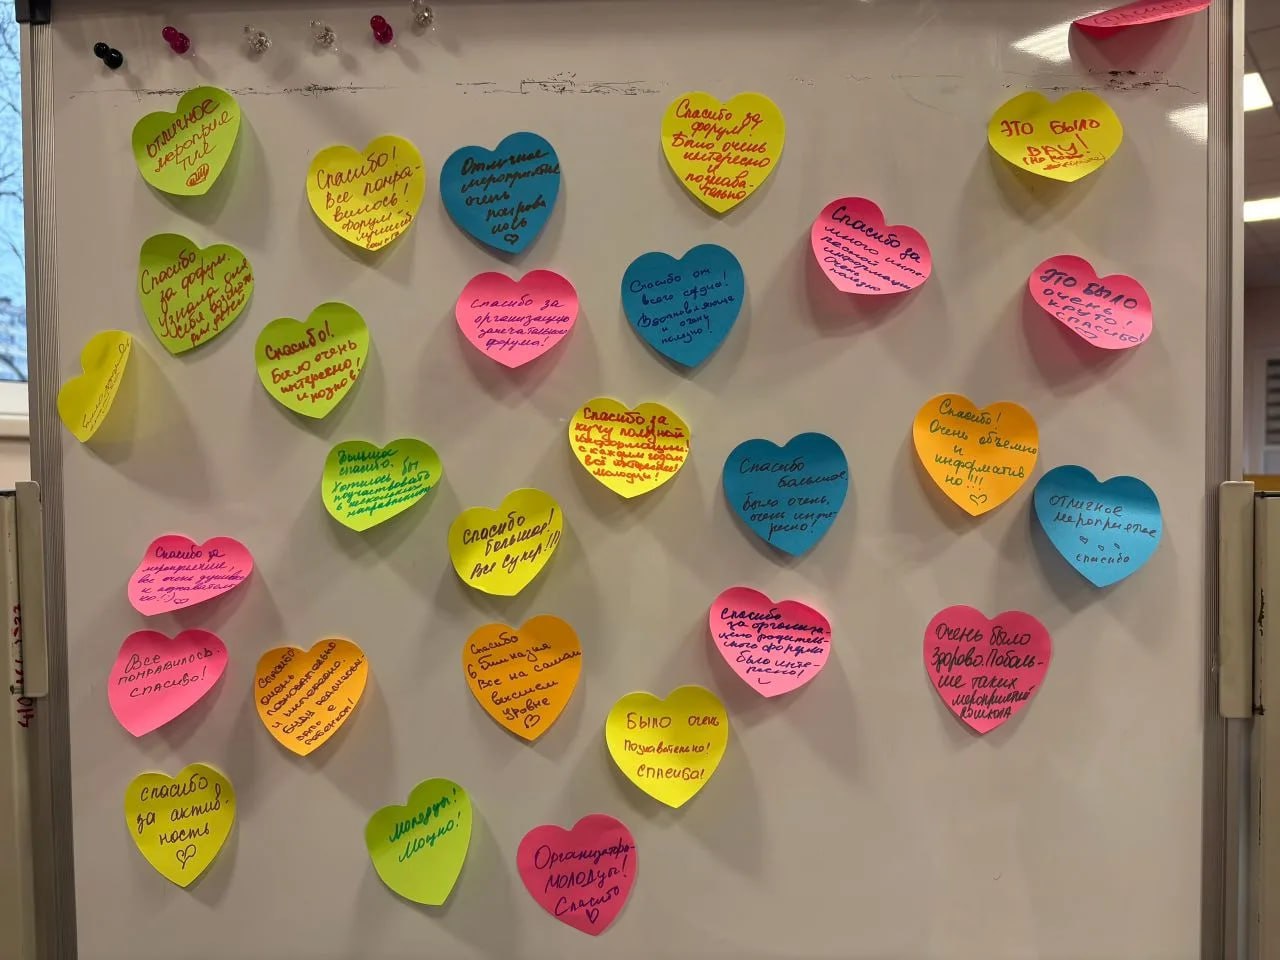 ОТЛИЧНОЕ
мероприя
тие
Спасибо!
Все понра-
вилось!
Форум
лучший
Отличное
мероприятие
очень
понрави
лось
Спасибо за
форум!
Было очень
интересно
и
познава-
тельно
ЭТО БЫЛО
ВАУ!
Спасибо за
много инте-
ресной
информации
Очень
полезно
Спасибо
за форум.
Узнала для
себя
Спасибо за
организацию
замечательного
форума!
Спасибо от
всего сердца!
Вдохновляюще
и очень
полезно!
ЭТО БЫЛО
ОЧЕНЬ
КРУТО!
СПАСИБО!
Спасибо!
Было очень
интересно
и
Спасибо за
кучу полезной
информации!
с каждым годом
всё интереснее!
Молодцы!
Спасибо!
Очень объемно
и
информатив
но!!!
Большое
спасибо.
Хотелось бы
поучаствовать
в нескольких
направлениях
Спасибо
большое
было очень,
очень инте-
ресно!
отличное
мероприятие
спасибо
Спасибо
большое!
Все супер!!!)
Спасибо за
мероприятие,
все очень душевно
и познаватель
но!:)
Спасибо
за организа-
цию родитель-
ского форума
было инте-
ресно!
Очень было
здорово. Поболь-
ше таких
мероприятий
Все
понравилось.
спасибо!
Спасибо!
очень
познавательно
и интересно.
Буду
Спасибо
Гимназия
Все на самом
высшем
уровне
Было очень
познавательно!
спасибо!
спасибо
за актив-
ность
Молодцы!
Мощно!
Организаторы-
молодцы!
Спасибо